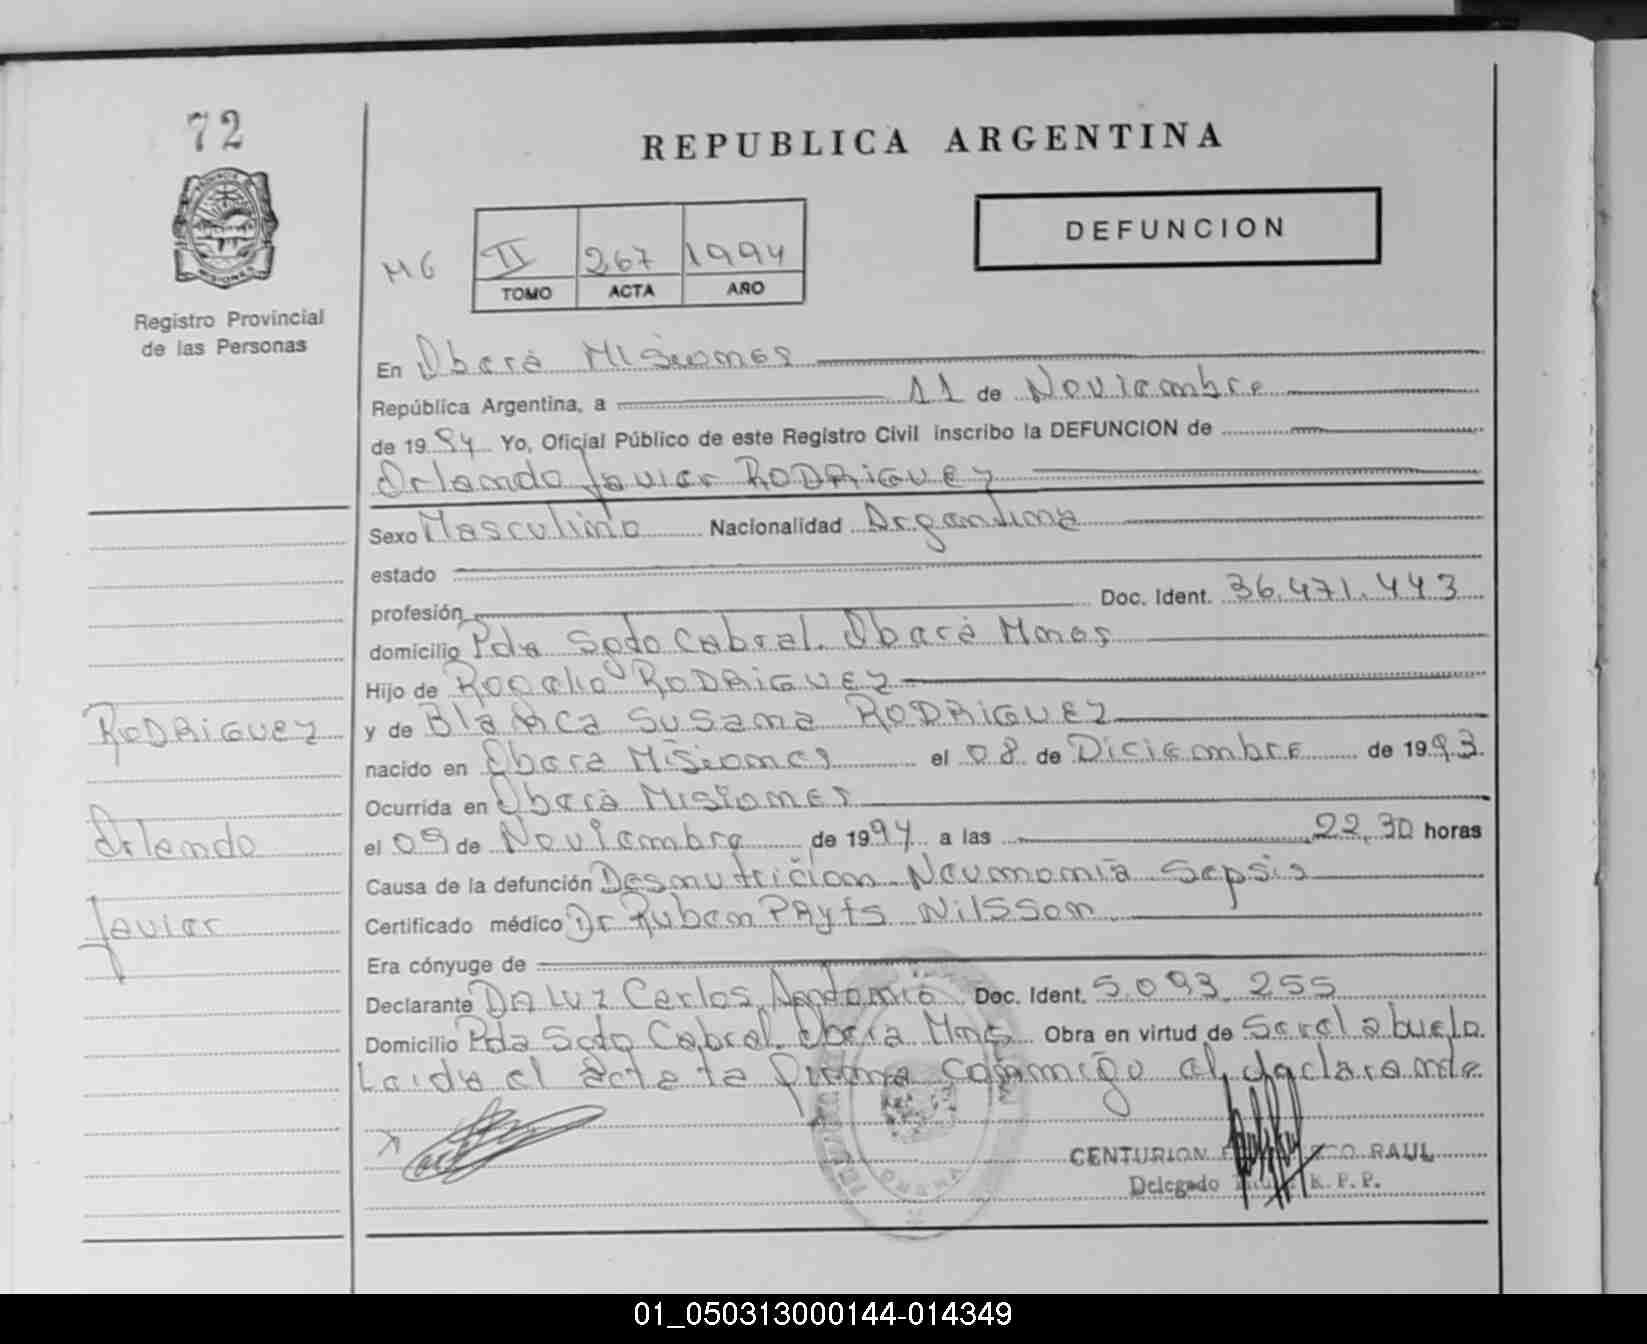 72
REPUBLICA ARGENTINA
DEFUNCION
MG II 267 1994
TOMO ACTA AÑO
Registro Provincial
de las Personas
En Oberá Misiones
República Argentina, a 11 de Noviembre
de 1994 Yo, Oficial Público de este Registro Civil inscribo la DEFUNCION de
Orlando Javier RODRIGUEZ
Sexo Masculino Nacionalidad Argentina
estado
profesión Doc. Ident. 36.471.443
domicilio Pda Sgto Cabral. Oberá Mnes
Hijo de Rogelio RODRIGUEZ
y de Blanca Susana RODRIGUEZ
nacido en Oberá Misiones el 08 de Diciembre de 1993.
Ocurrida en Oberá Misiones
el 09 de Noviembre de 1994 a las 22,30 horas
Causa de la defunción Desnutrición Neumonia Sepsis
Certificado médico Dr Ruben Nilsson
Era cónyuge de
Declarante DA LUZ Carlos Doc. Ident. 5.093.255
Domicilio Pda Sgto Cabral. Oberá Mnes Obra en virtud de Ser el abuelo.
Leida el acta la firma conmigo el declarante
RODRIGUEZ
Orlando
Javier
CENTURION RAUL
Delegado R. P. P.
01_050313000144-014349